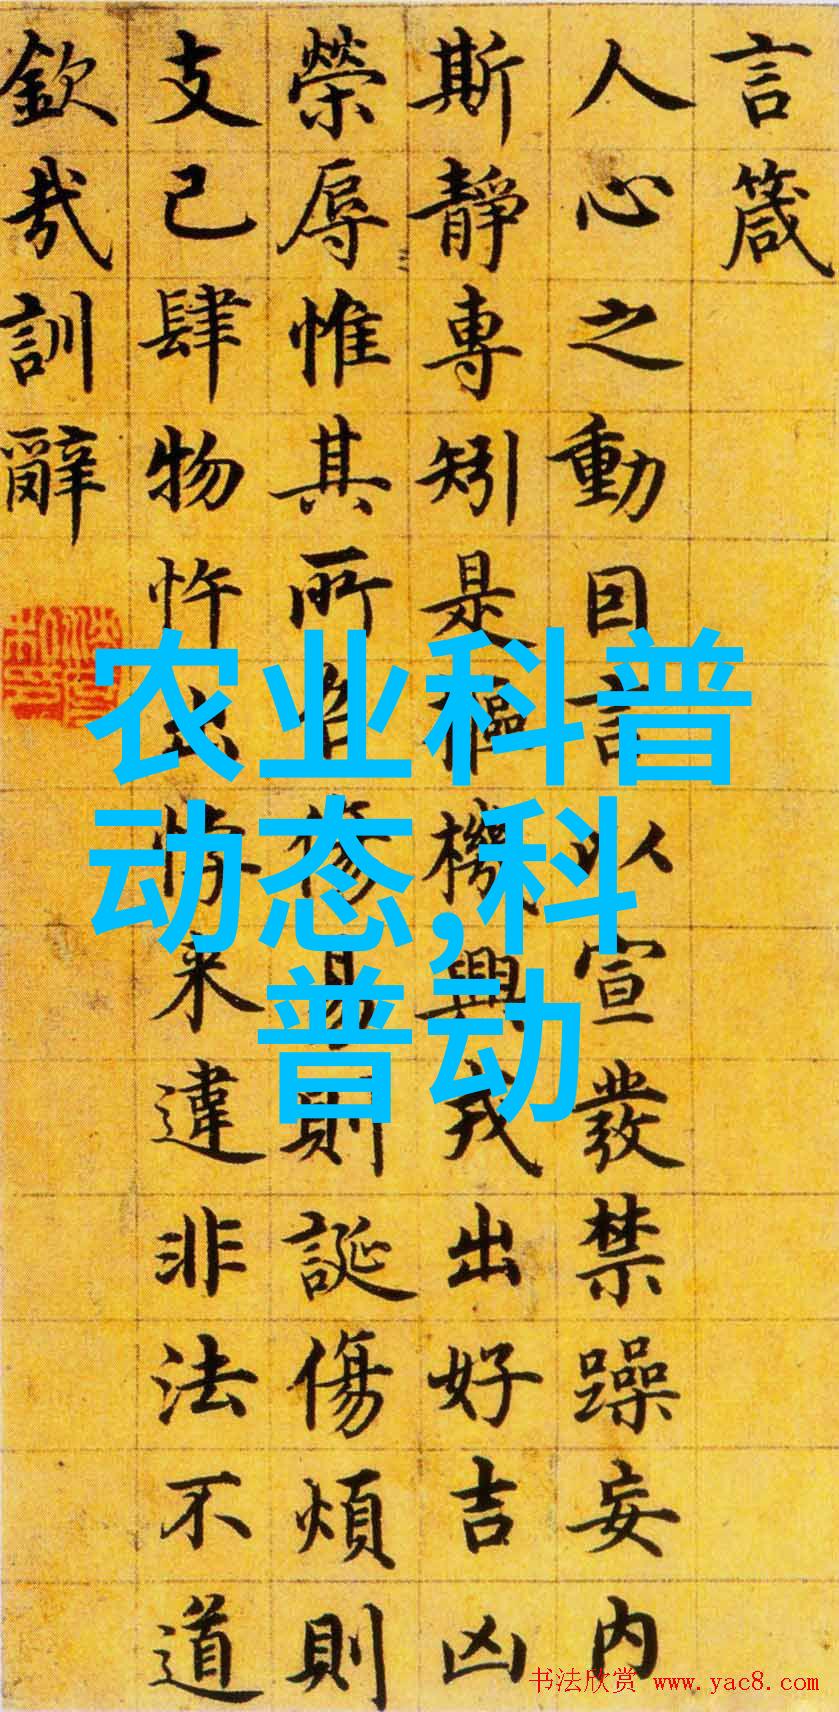 言箴
人心之動因言以宣發禁躁妄内
斯靜專矧是樞機興戎出好吉凶
榮辱惟其所召傷易則誕傷煩則
支己肆物忤出悖来違非法不道
欽哉訓辭
农业科普
动态,科
普动
书法欣赏 www.yac8.com